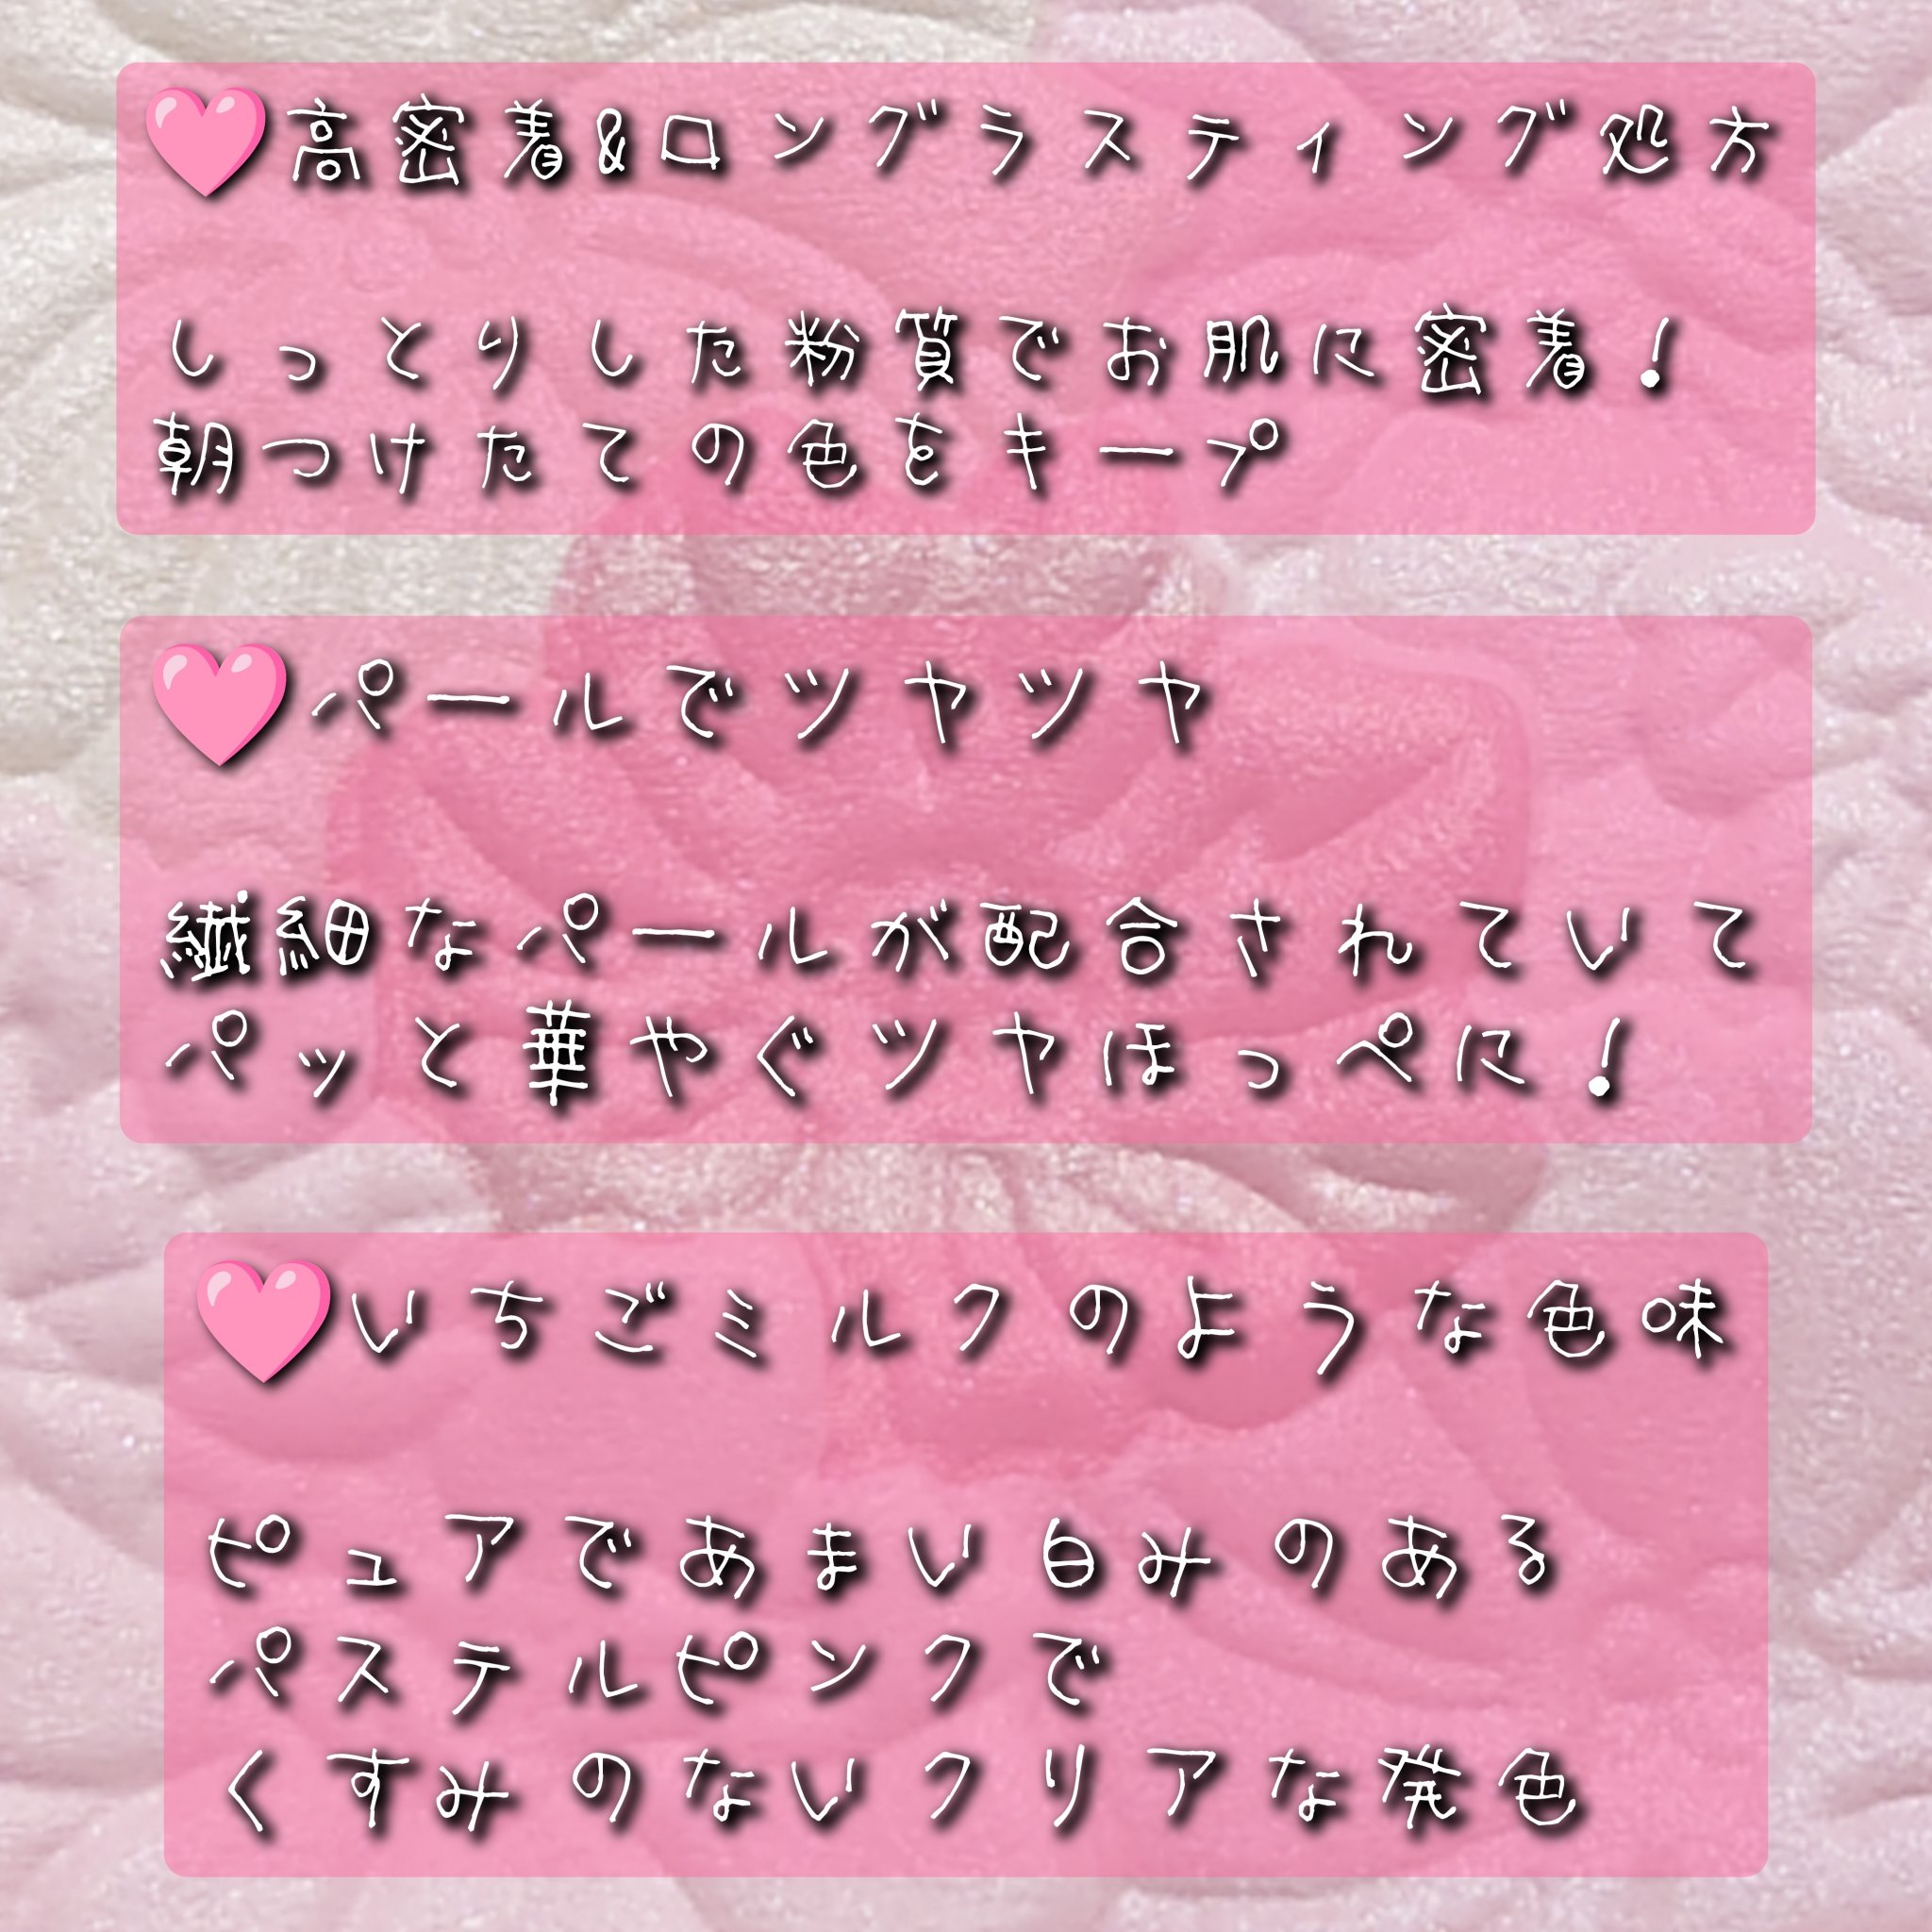 🩷高密着&ロングラスティング処方
しっとりした粉質でお肌に密着！
朝つけたての色をキープ
🩷パールでツヤツヤ
繊細なパールが配合されていて
パッと華やぐツヤほっぺに！
🩷いちごミルクのような色味
ピュアであまい白みのある
パステルピンクで
くすみのないクリアな発色